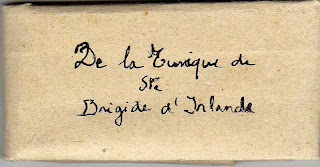 De la Tunique de
Ste
Brigide d'Irlande